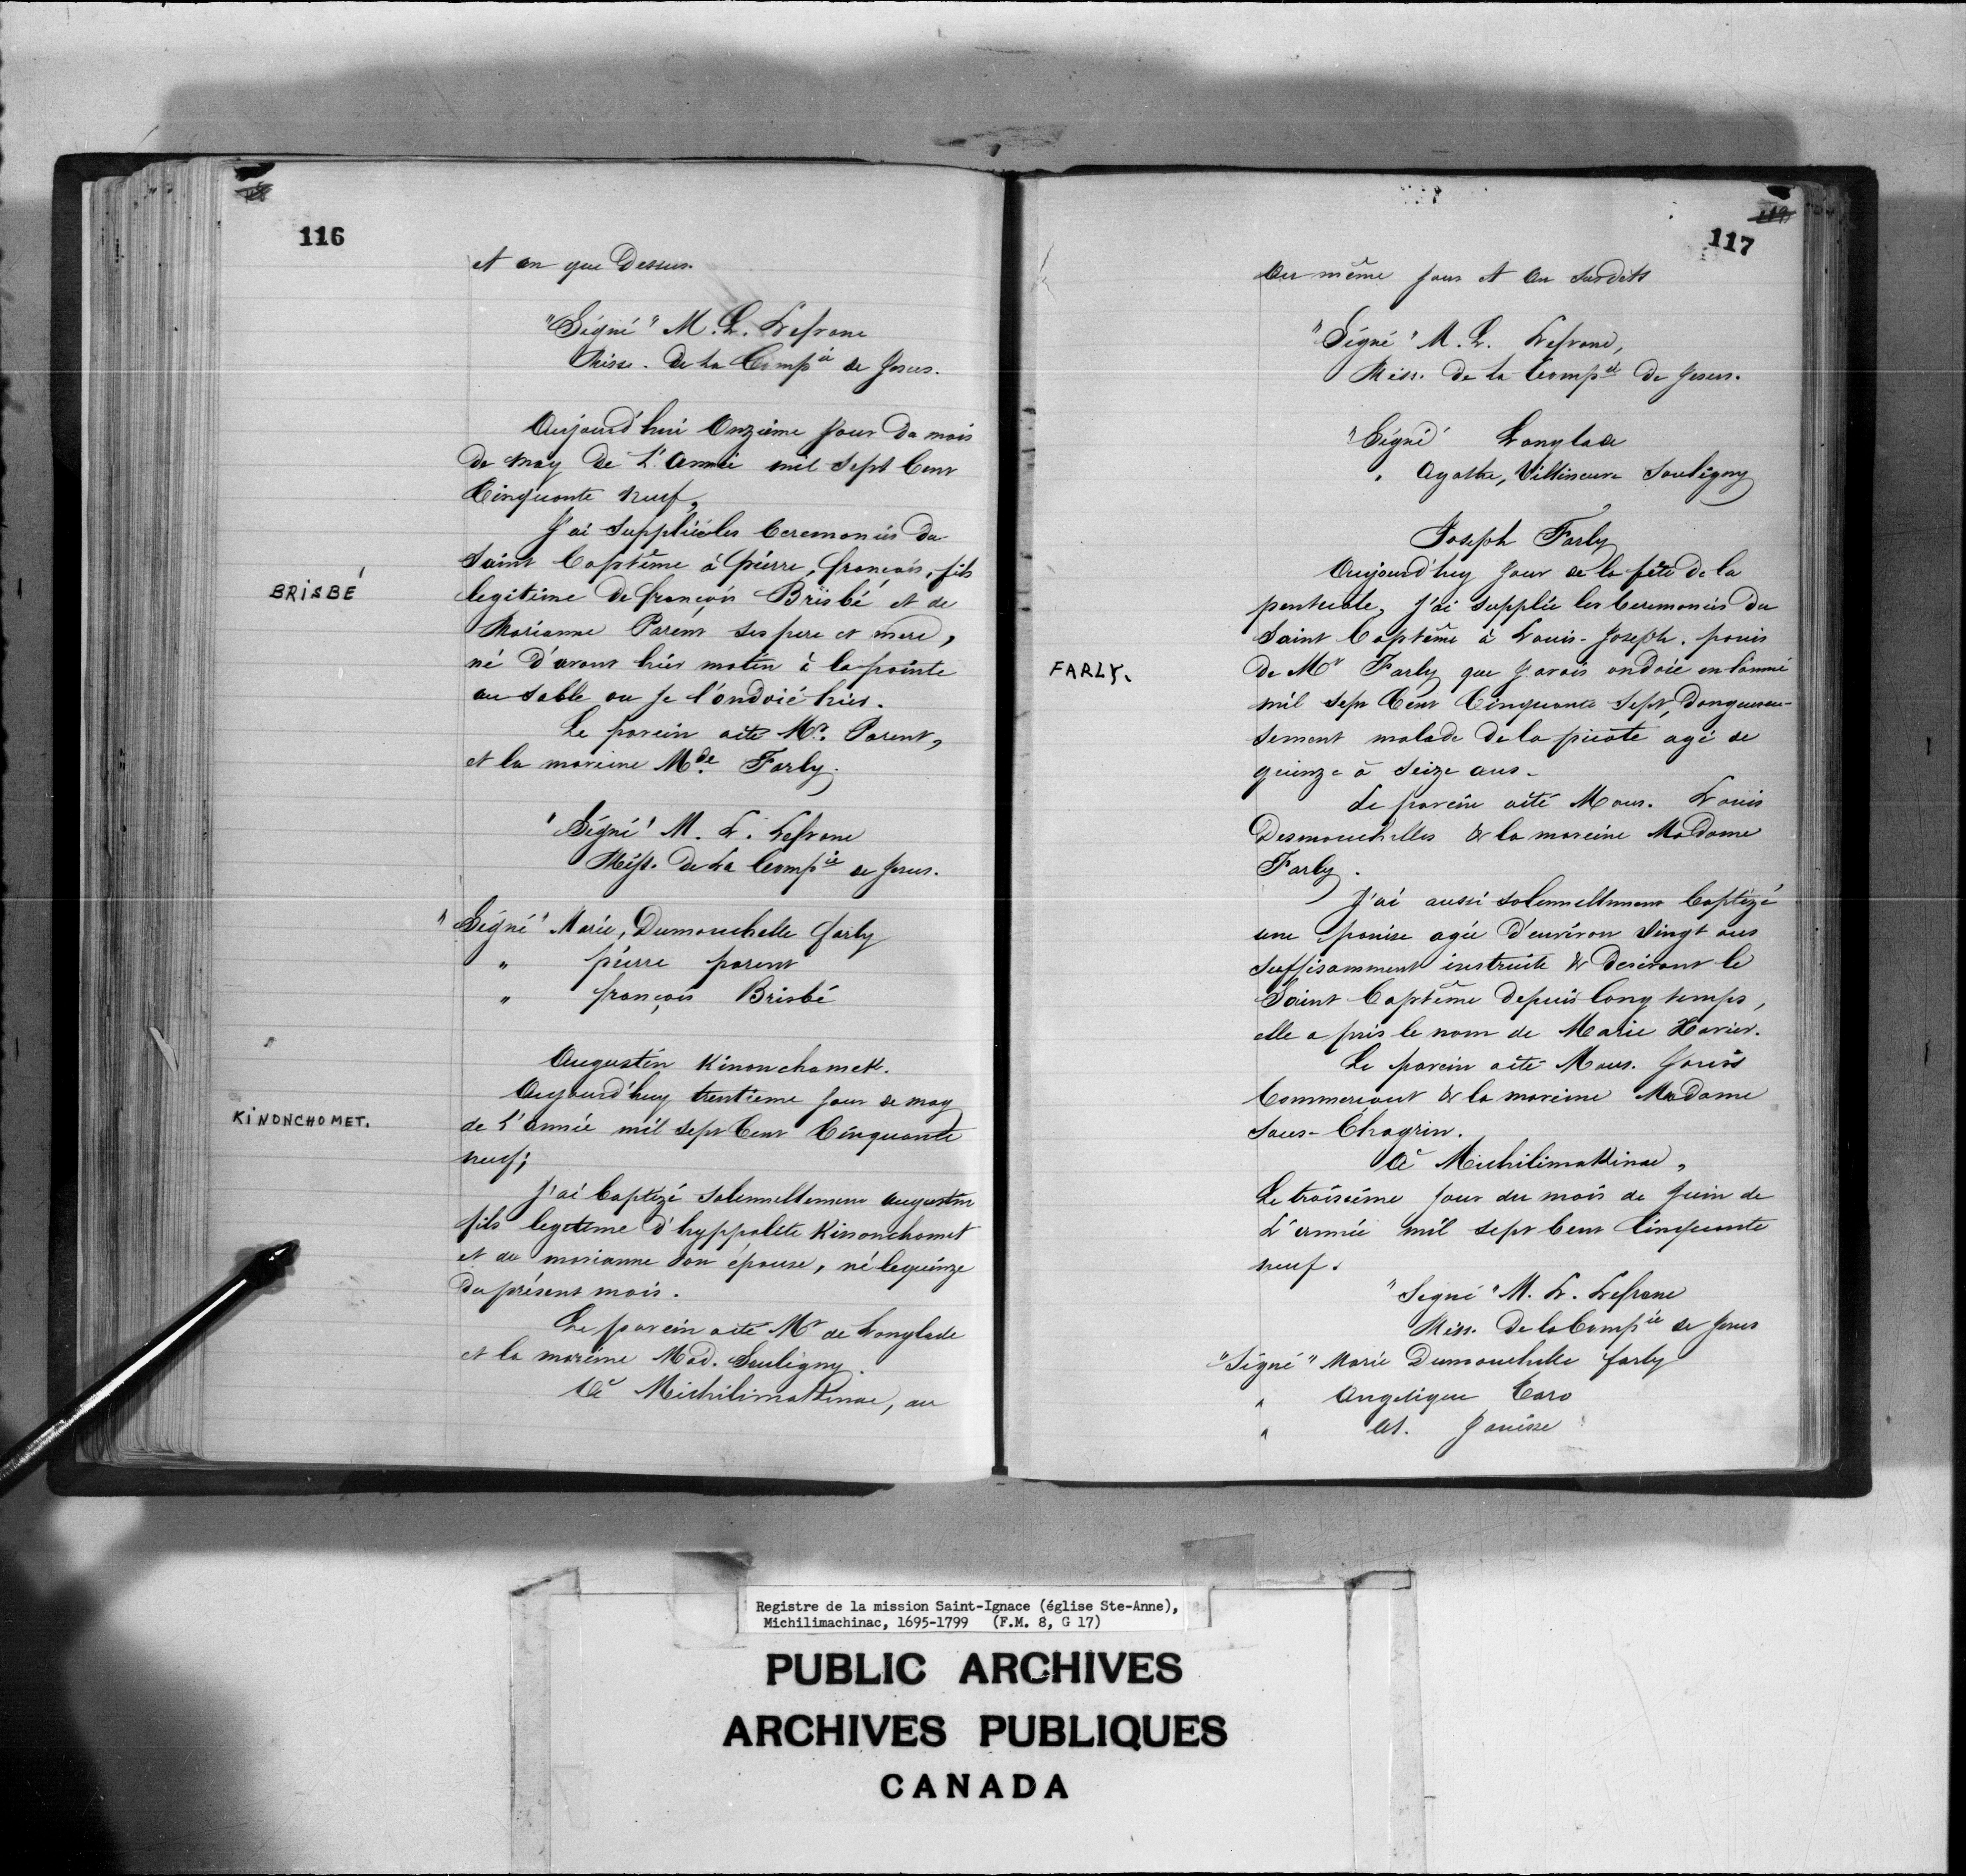 116
et an que Dessus.
"Signé" M. L. Lefranc
Miss. de La Comp.ie de Jesus.
Aujourd'hui Onzieme Jour du mois
de May de L'Année mil Sept Cent
Cinquante neuf,
BRISBÉ
J'ai Suppléé les Ceremonies du
Saint Baptême à pierre, françois, fils
legitime de françois Brisbé et de
Marianne Parent ses pere et mere,
né d'avant hier matin à la pointe
au Sable ou Je l'ondoié hier.
Le parein a été Mr. Parent,
et la mareine Mde. Farly.
"Signé" M. L. Lefranc
Miss. de La Comp.ie de Jesus.
"Signé" Marie, Dumouchelle farly
" pierre parent
" françois Brisbé
KINONCHOMET.
Augustin Kinonchamek.
Aujourd'huy trentieme Jour de may
de L'année mil sept Cent Cinquante
neuf;
J'ai baptizé Solemnellement augustin
fils legitime d'hyppolite Kinonchamet
et de marianne son épouse, né le quinze
du présent mois.
Le parein a été Mr de Langlade
et la mareine Mad. Souligny.
A Michilimakinac, au
117
Au même Jour et An Susdits
"Signé" M. L. Lefranc,
Miss. de la Comp.ie de Jesus.
"Signé" Langlade
" Agathe, Villeneuve Souligny
FARLY.
Joseph Farly
Aujourd'huy Jour de la fête de la
pentecote, J'ai supplée les Ceremonies du
Saint Baptême à Louis-Joseph. panis
de Mr Farly que J'avais ondoié en l'année
mil sept Cent Cinquante Sept, dangereu-
sement malade de la picote agé de
quinze à Seize ans.
Le parein a été Mons. Louis
Desmouchelles & la mareine Madame
Farly.
J'ai aussi solemnellement baptizé
une panise agée d'environ Vingt ans
suffisamment instruite & desirant le
Saint Baptême depuis long temps,
elle a pris le nom de Marie Xavier.
Le parein a été Mons. Janis
Commerçant & la mareine Madame
Sans-Chagrin.
A Michilimakinac,
Le troisième Jour du mois de Juin de
L'année mil sept Cent Cinquante
neuf.
"Signé" M. L. Lefranc
Miss. de la Comp.ie de Jesus
"Signé" Marie Dumouchelle farly
" Angelique Caro
" At. Janisse
Registre de la mission Saint-Ignace (église Ste-Anne),
Michilimachinac, 1695-1799 (F.M. 8, G 17)
PUBLIC ARCHIVES
ARCHIVES PUBLIQUES
CANADA